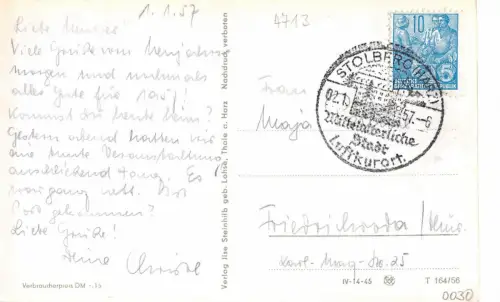 1.1.57
4713
Liebe
Viele Grüße vom Neujahrs-
morgen und nochmals
alles Gute für 1957!
Kommst Du heute heim?
Gestern abend hatten wir
eine bunte Veranstaltung
anschließend Tanz. Es
war ganz nett. Ist
Post gekommen?
Liebe Grüße!
Deine Christel
Verbraucherpreis DM -,15
Verlag Ilse Steinhilb geb. Lohse, Thale a. Harz Nachdruck verboten
10
5
STOLBERG (HARZ)
02.1. 57.-8
Mittelalterliche
Stadt
Luftkurort.
Frau
Maja
Friedrichroda / Thür.
Karl-Marx-Str. 25
IV-14-45 T 164/56
0030